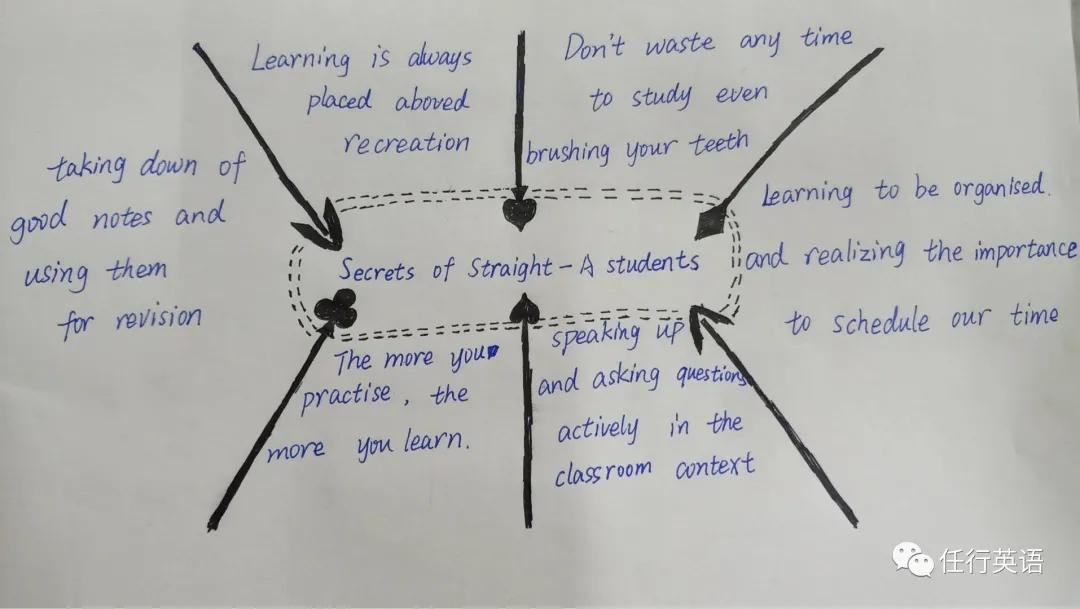 Learning is always
placed aboved
recreation
Don't waste any time
to study even
brushing your teeth
taking down of
good notes and
using them
for revision
Secrets of Straight-A students
Learning to be organised.
and realizing the importance
to schedule our time
The more you
practise, the
more you learn.
speaking up
and asking questions
actively in the
classroom context
任行英语